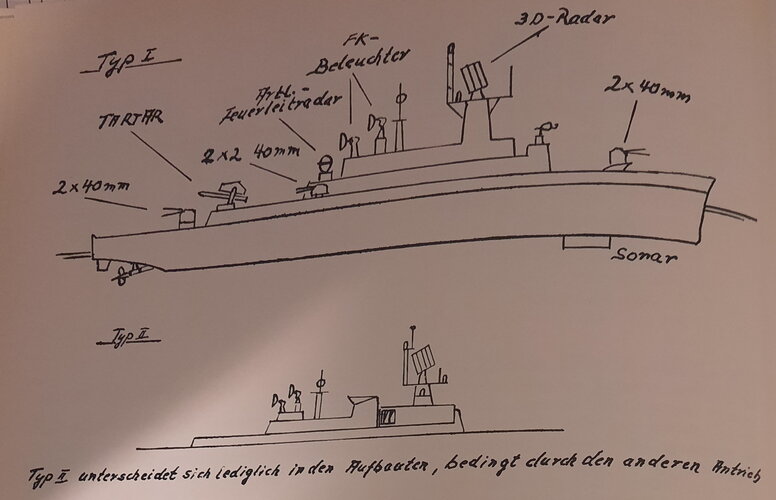 3D-Radar
FK-
Beleuchter
Typ I
Artl.-
Feuerleitradar
2x40mm
TARTAR
2x2 40mm
2x40mm
Sonar
Typ II
Typ II unterscheidet sich lediglich in den Aufbauten, bedingt durch den anderen Antrieb